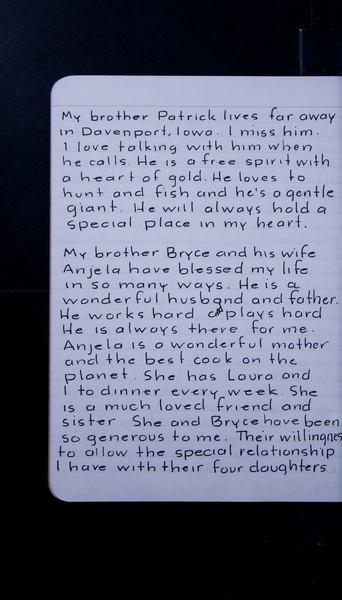 My brother Patrick lives far away
in Davenport, Iowa. I miss him.
I love talking with him when
he calls. He is a free spirit with
a heart of gold. He loves to
hunt and fish and he's a gentle
giant. He will always hold a
special place in my heart.
My brother Bryce and his wife
Anjela have blessed my life
in so many ways. He is a
wonderful husband and father.
He works hard & plays hard
He is always there for me.
Anjela is a wonderful mother
and the best cook on the
planet. She has Laura and
I to dinner every week. She
is a much loved friend and
sister. She and Bryce have been
so generous to me. Their willingnes
to allow the special relationship
I have with their four daughters